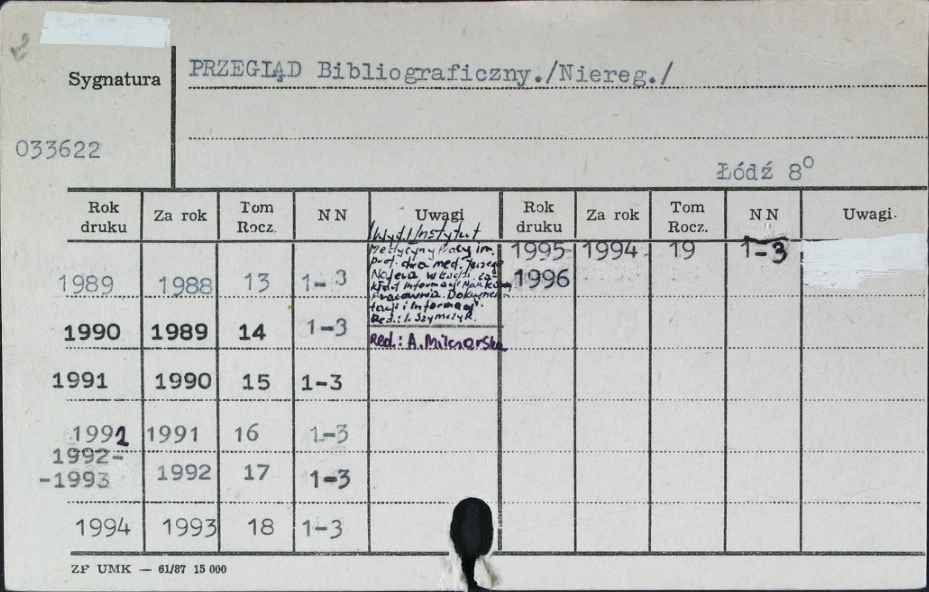 Sygnatura
PRZEGIĄD Bibliograficzny./Niereg./
033622
Łódź 8º
Rok druku Za rok Tom Rocz. NN Uwagi Rok druku Za rok Tom Rocz. NN Uwagi.
/Wyd./Instytut
Medycyny Pracy im.
Prof. dra med. Jerzego
Nofera w Łodzi. Za-
kład Informacji Naukowej
Pracownia Dokumen-
tacji i Informacji.
Red.: I. Szymczyk.
Red.: A. Milcz
1989 1988 13 1-3
1990 1989 14 1-3
1991 1990 15 1-3
1992 1991 16 1-3
1992-
-1993 1992 17 1-3
1994 1993 18 1-3
1995- 1994 19 1-3
1996
ZF UMK — 61/87 15 000